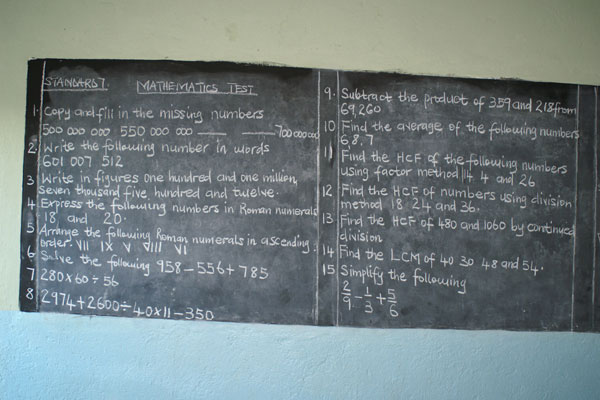 STANDARD 7. MATHEMATICS TEST
1. Copy and fill in the missing numbers
500 000 000 550 000 000 ____ ____ 700 000 000
2. Write the following number in words
601 007 512
3. Write in figures one hundred and one million,
Seven thousand five hundred and twelve.
4. Express the following numbers in Roman numerals
18 and 20.
5. Arrange the following Roman numerals in ascending
order. VII IX V VIII VI
6. Solve the following 958 - 556 + 785
7. 280 x 60 ÷ 56
8. 2974 + 2600 ÷ 40 x 11 - 350
9. Subtract the product of 359 and 218 from
69,260
10 Find the average of the following numbers
6, 8, 7
11 Find the HCF of the following numbers
using factor method 14 4 and 26
12 Find the HCF of numbers using division
method 18 24 and 36.
13 Find the HCF of 480 and 1060 by continued
division
14 Find the LCM of 40 30 48 and 54.
15 Simplify the following
2/9 - 1/3 + 5/6